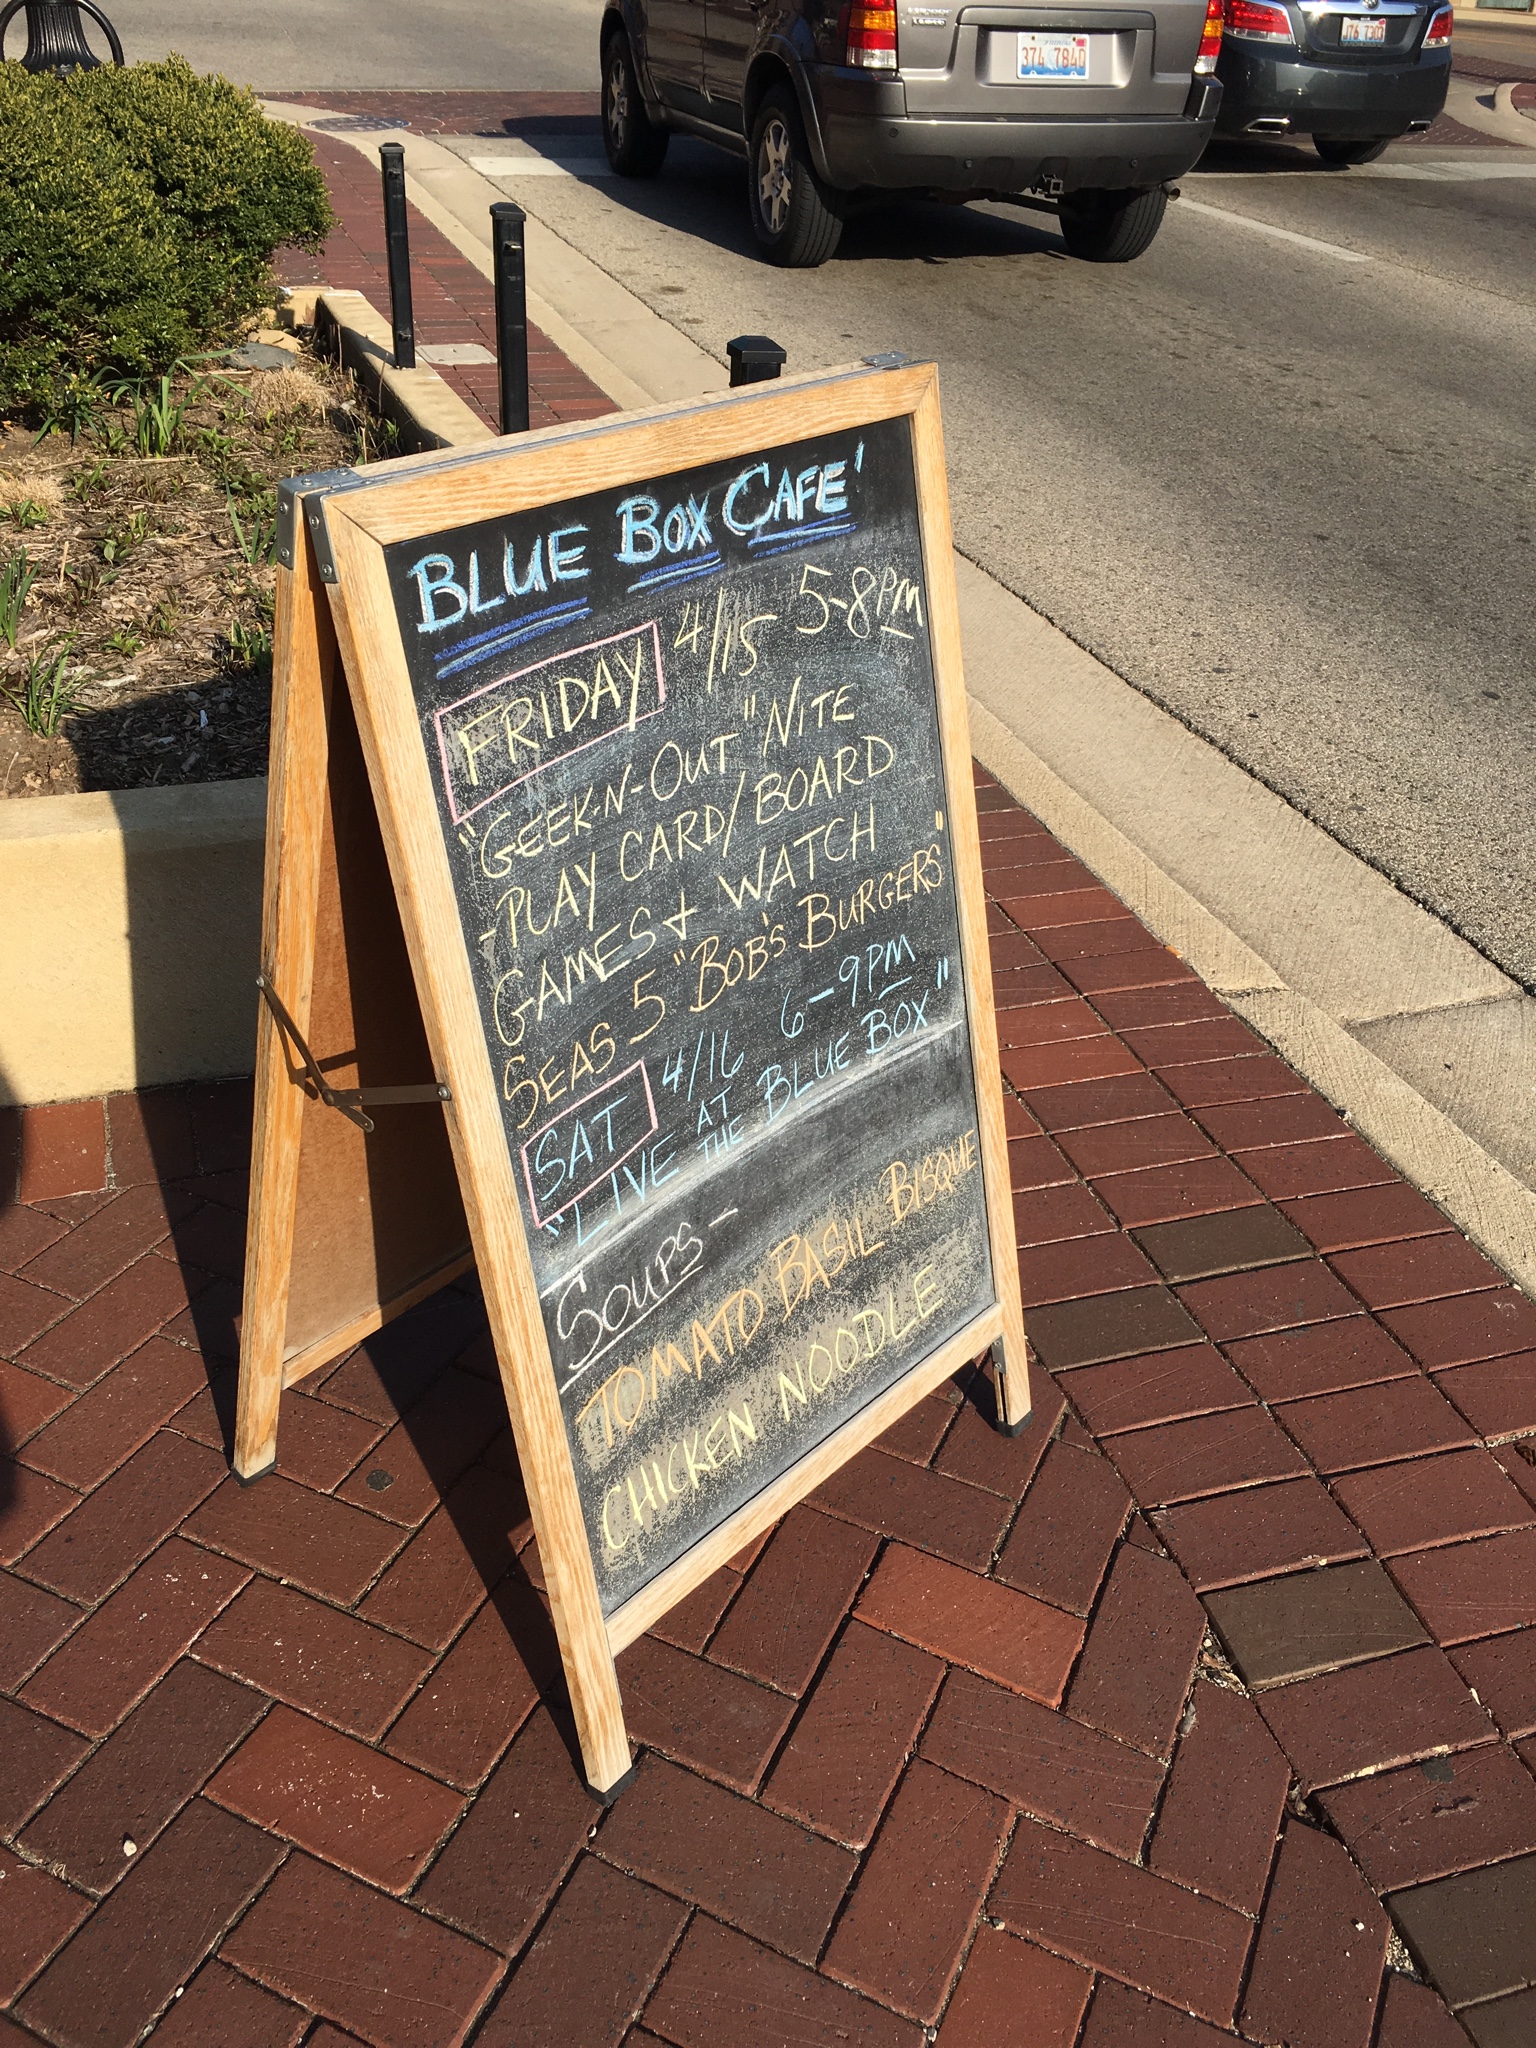 374 7840
BLUE BOX CAFE'
FRIDAY 4/15 5-8PM
"GEEK-N-OUT" NITE
-PLAY CARD/BOARD
GAMES & WATCH
SEAS 5 "BOB'S BURGERS"
SAT 4/16 6-9PM
"LIVE AT THE BLUE BOX"
SOUPS -
TOMATO BASIL BISQUE
CHICKEN NOODLE